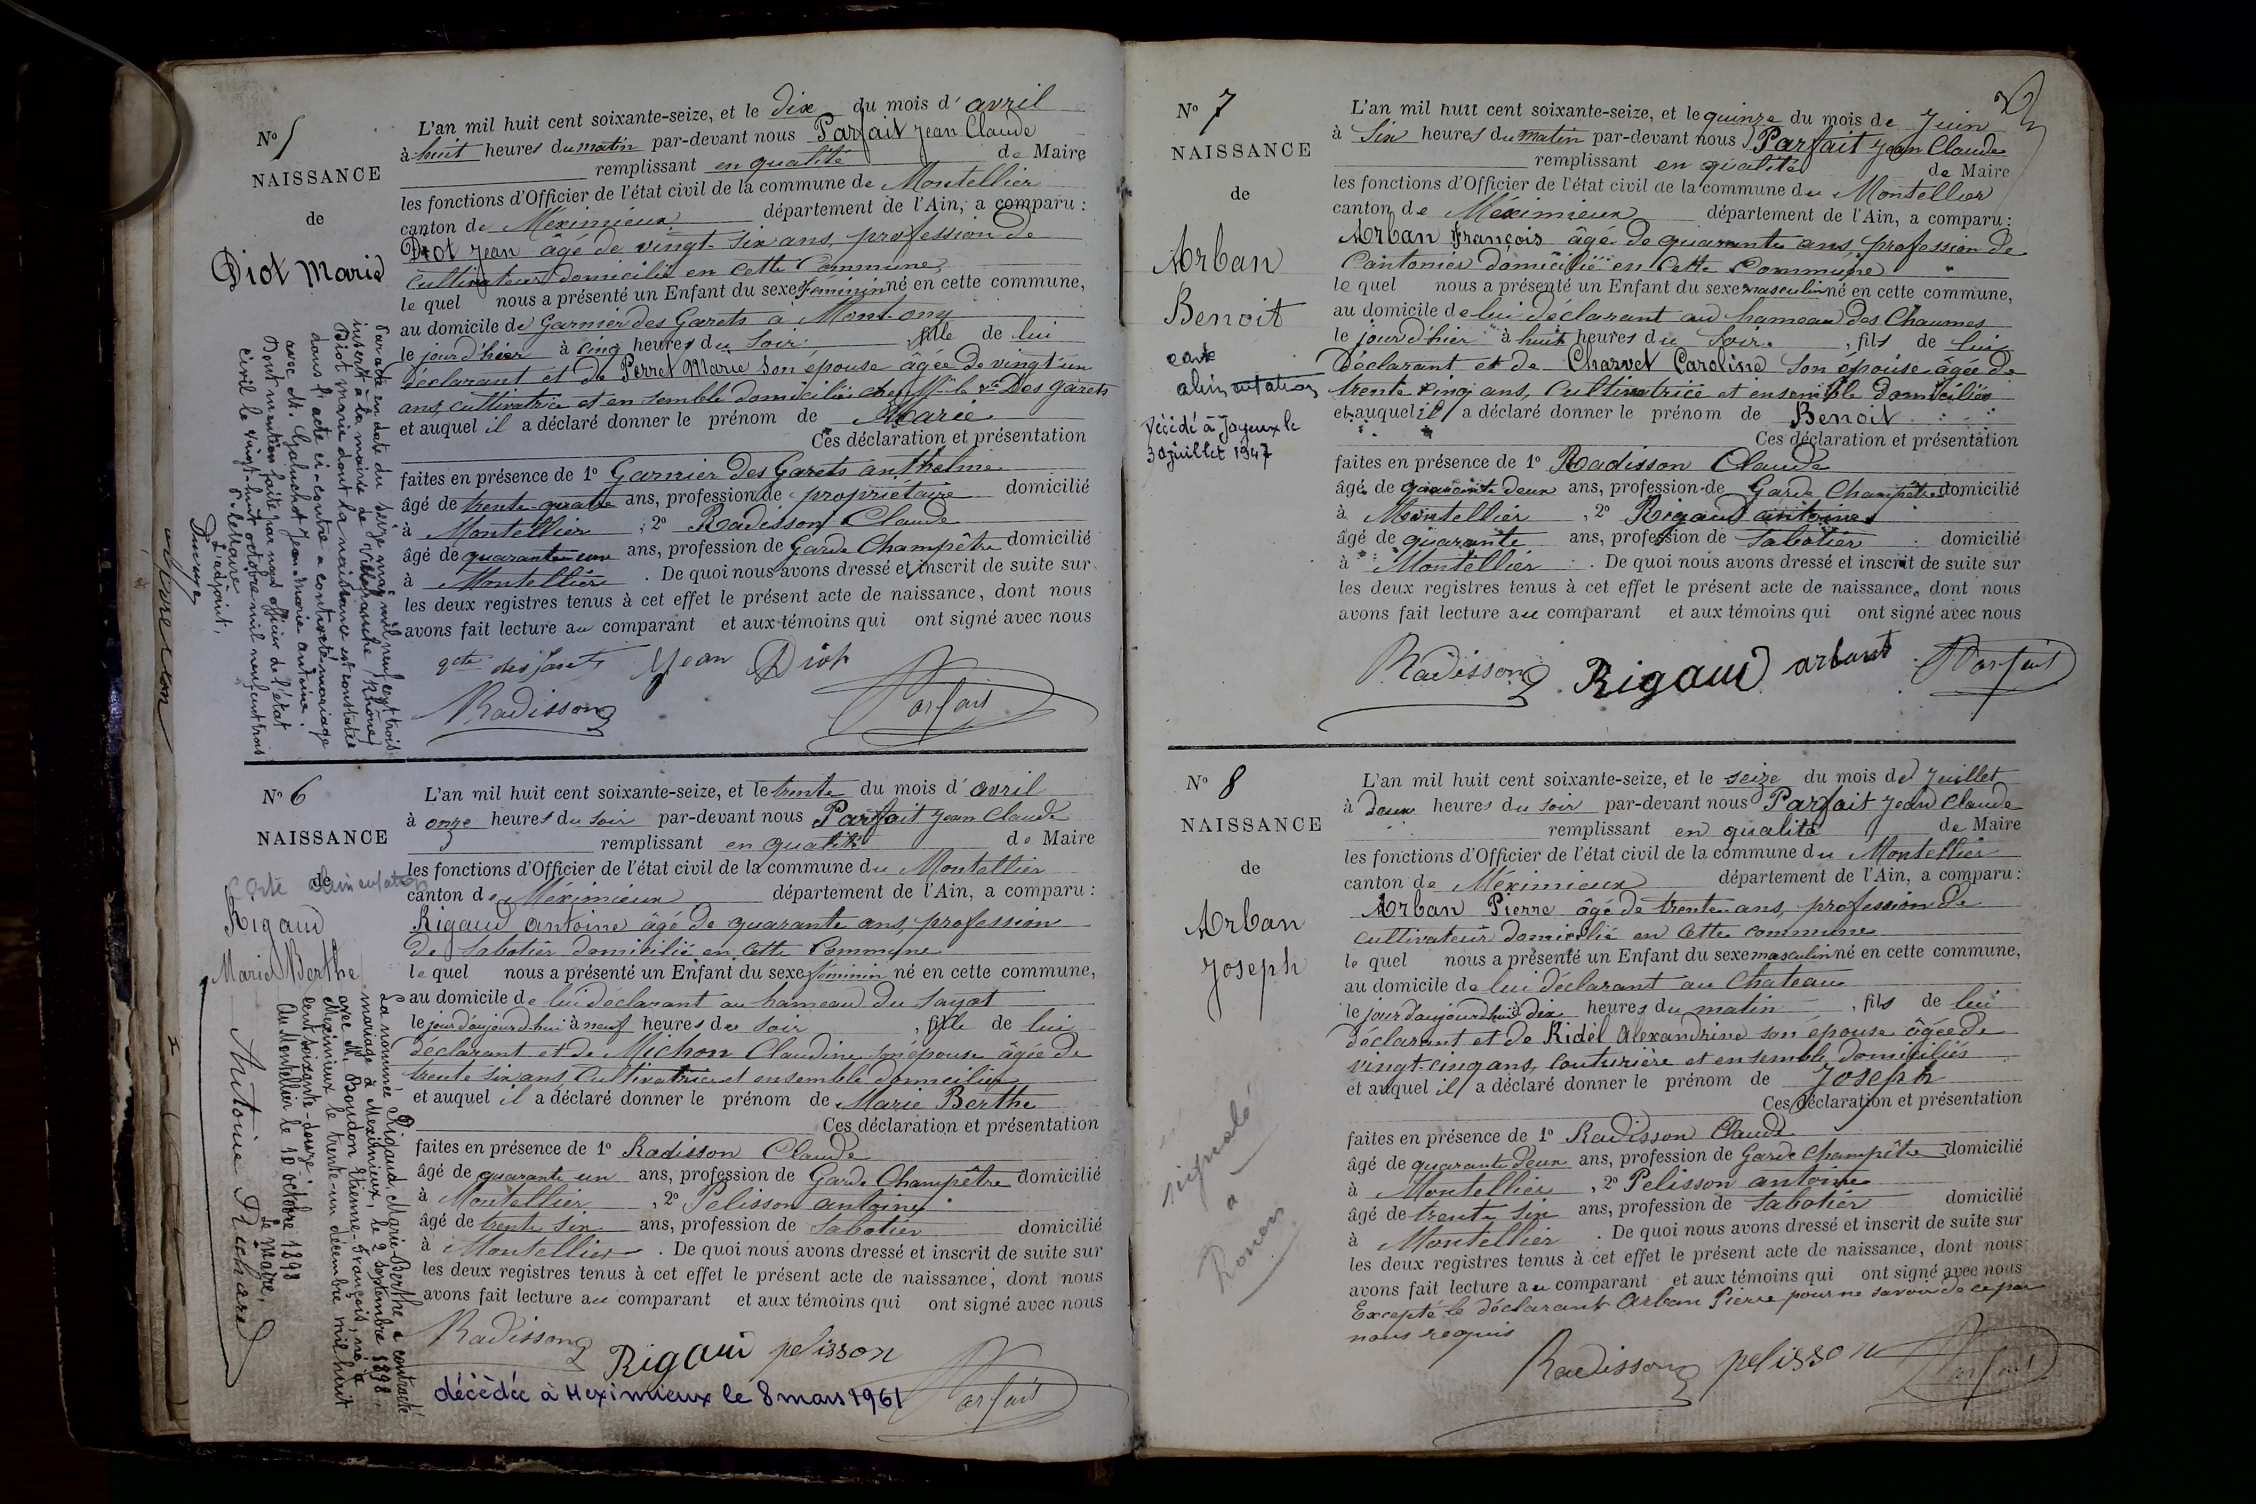 N° 5
NAISSANCE
de
Diot Marie
L'an mil huit cent soixante-seize, et le dix du mois d' avril
à huit heures du matin par-devant nous Parfait Jean Claude
remplissant en qualité de Maire
les fonctions d'Officier de l'état civil de la commune de Montellier
canton de Méximieux département de l'Ain, a comparu :
Diot Jean âgé de vingt six ans, profession de
cultivateur domicilié en cette Commune,
le quel nous a présenté un Enfant du sexe féminin né en cette commune,
au domicile de Garnier des Garets a Mont-ony
le jour d'hier à cinq heures du Soir , fille de lui
déclarant et de Perret Marie son épouse âgée de vingt un
ans, cultivatrice et en semble domiciliés chez Mme la Vve Des Garets
et auquel il a déclaré donner le prénom de Marie
Ces déclaration et présentation
faites en présence de 1° Garnier Des Garets anthelme
âgé de trente quatre ans, profession de propriétaire domicilié
à Montellier ; 2° Radisson Claude
âgé de quarante un ans, profession de Garde Champêtre domicilié
à Montellier . De quoi nous avons dressé et inscrit de suite sur
les deux registres tenus à cet effet le présent acte de naissance, dont nous
avons fait lecture au comparant et aux témoins qui ont signé avec nous
gte des Garets Jean Diot
Radisson Parfait
Par acte en date du seize mai mil neuf cent trois
inscrit à la mairie de Villefranche (Rhône)
Diot Marie dont la naissance est constatée
dans l'acte ci-contre a contracté mariage
avec M. Galuchot Jean-Marie Antoine.
Dont mention faite par nous officier de l'état
civil le vingt-huit octobre mil neuf cent trois
P. le Maire
l'adjoint,
N° 6
NAISSANCE
de
Carte alimentation
Rigaud
Marie Berthe
L'an mil huit cent soixante-seize, et le trente du mois d' avril
à onze heures du soir par-devant nous Parfait Jean Claude
remplissant en qualité de Maire
les fonctions d'Officier de l'état civil de la commune du Montellier
canton de Méximieux département de l'Ain, a comparu :
Rigaud antoine âgé de quarante ans, profession
de Sabotier domicilié en cette Commune
le quel nous a présenté un Enfant du sexe féminin né en cette commune,
au domicile de lui déclarant au hameau du
le jour d'aujourd'hui à neuf heures du soir , fille de lui
déclarant et de Michon Claudine son épouse âgée de
trente six ans, cultivatrice et ensemble domiciliés
et auquel il a déclaré donner le prénom de Marie Berthe
Ces déclaration et présentation
faites en présence de 1° Radisson Claude
âgé de quarante un ans, profession de Garde Champêtre domicilié
à Montellier , 2° Pelisson antoine
âgé de trente six ans, profession de Sabotier domicilié
à Montellier . De quoi nous avons dressé et inscrit de suite sur
les deux registres tenus à cet effet le présent acte de naissance, dont nous
avons fait lecture au comparant et aux témoins qui ont signé avec nous
Radisson Rigaud pelisson
Parfait
décédée à Meximieux le 8 mars 1961
La nommée Rigaud Marie-Berthe a contracté
mariage à Meximieux, le 2 septembre 1898,
avec M. Bourdon Etienne-François, né à
Meximieux le trente-un décembre mil huit
cent soixante-douze.
Au Montellier le 10 octobre 1898
Le Maire,
Antoine Richard
N° 7
NAISSANCE
de
Arban
Benoit
carte
alimentation
Décédé à Joyeux le
30 juillet 1947
L'an mil huit cent soixante-seize, et le quinze du mois de Juin
à Six heures du matin par-devant nous Parfait Jean Claude
remplissant en qualité de Maire
les fonctions d'Officier de l'état civil de la commune du Montellier
canton de Méximieux département de l'Ain, a comparu :
Arban François âgé de quarante ans, profession de
Cantonier domicilié en cette Commune
le quel nous a présenté un Enfant du sexe masculin né en cette commune,
au domicile de lui déclarant au hameau des Chaumes
le jour d'hier à huit heures du Soir , fils de lui
déclarant et de Charvet Caroline Son épouse âgée de
trente cinq ans, Cultivatrice et ensemble domiciliés
et auquel il a déclaré donner le prénom de Benoit
Ces déclaration et présentation
faites en présence de 1° Radisson Claude
âgé de quarante deux ans, profession de Garde Champêtre domicilié
à Montellier , 2° Rigaud antoine
âgé de quarante ans, profession de Sabotier domicilié
à Montellier . De quoi nous avons dressé et inscrit de suite sur
les deux registres tenus à cet effet le présent acte de naissance, dont nous
avons fait lecture au comparant et aux témoins qui ont signé avec nous
Radisson Rigaud arbant Parfait
N° 8
NAISSANCE
de
Arban
Joseph
signalé
a
L'an mil huit cent soixante-seize, et le seize du mois de Juillet
à deux heures du soir par-devant nous Parfait Jean Claude
remplissant en qualité de Maire
les fonctions d'Officier de l'état civil de la commune du Montellier
canton de Méximieux département de l'Ain, a comparu :
Arban Pierre âgé de trente ans, profession de
cultivateur domicilié en cette commune
le quel nous a présenté un Enfant du sexe masculin né en cette commune,
au domicile de lui déclarant au Chateau
le jour d'aujourd'hui à dix heures du matin , fils de lui
déclarant et de Ridel Alexandrine son épouse âgée de
vingt-cinq ans, couturière et ensemble domiciliés
et auquel il a déclaré donner le prénom de Joseph
Ces déclaration et présentation
faites en présence de 1° Radisson Claude
âgé de quarante deux ans, profession de Garde Champêtre domicilié
à Montellier , 2° Pelisson antoine
âgé de trente six ans, profession de Sabotier domicilié
à Montellier . De quoi nous avons dressé et inscrit de suite sur
les deux registres tenus à cet effet le présent acte de naissance, dont nous
avons fait lecture au comparant et aux témoins qui ont signé avec nous
Excepté le déclarant Arban Pierre pour ne savoir de ce par
nous requis
Radisson pelisson Parfait